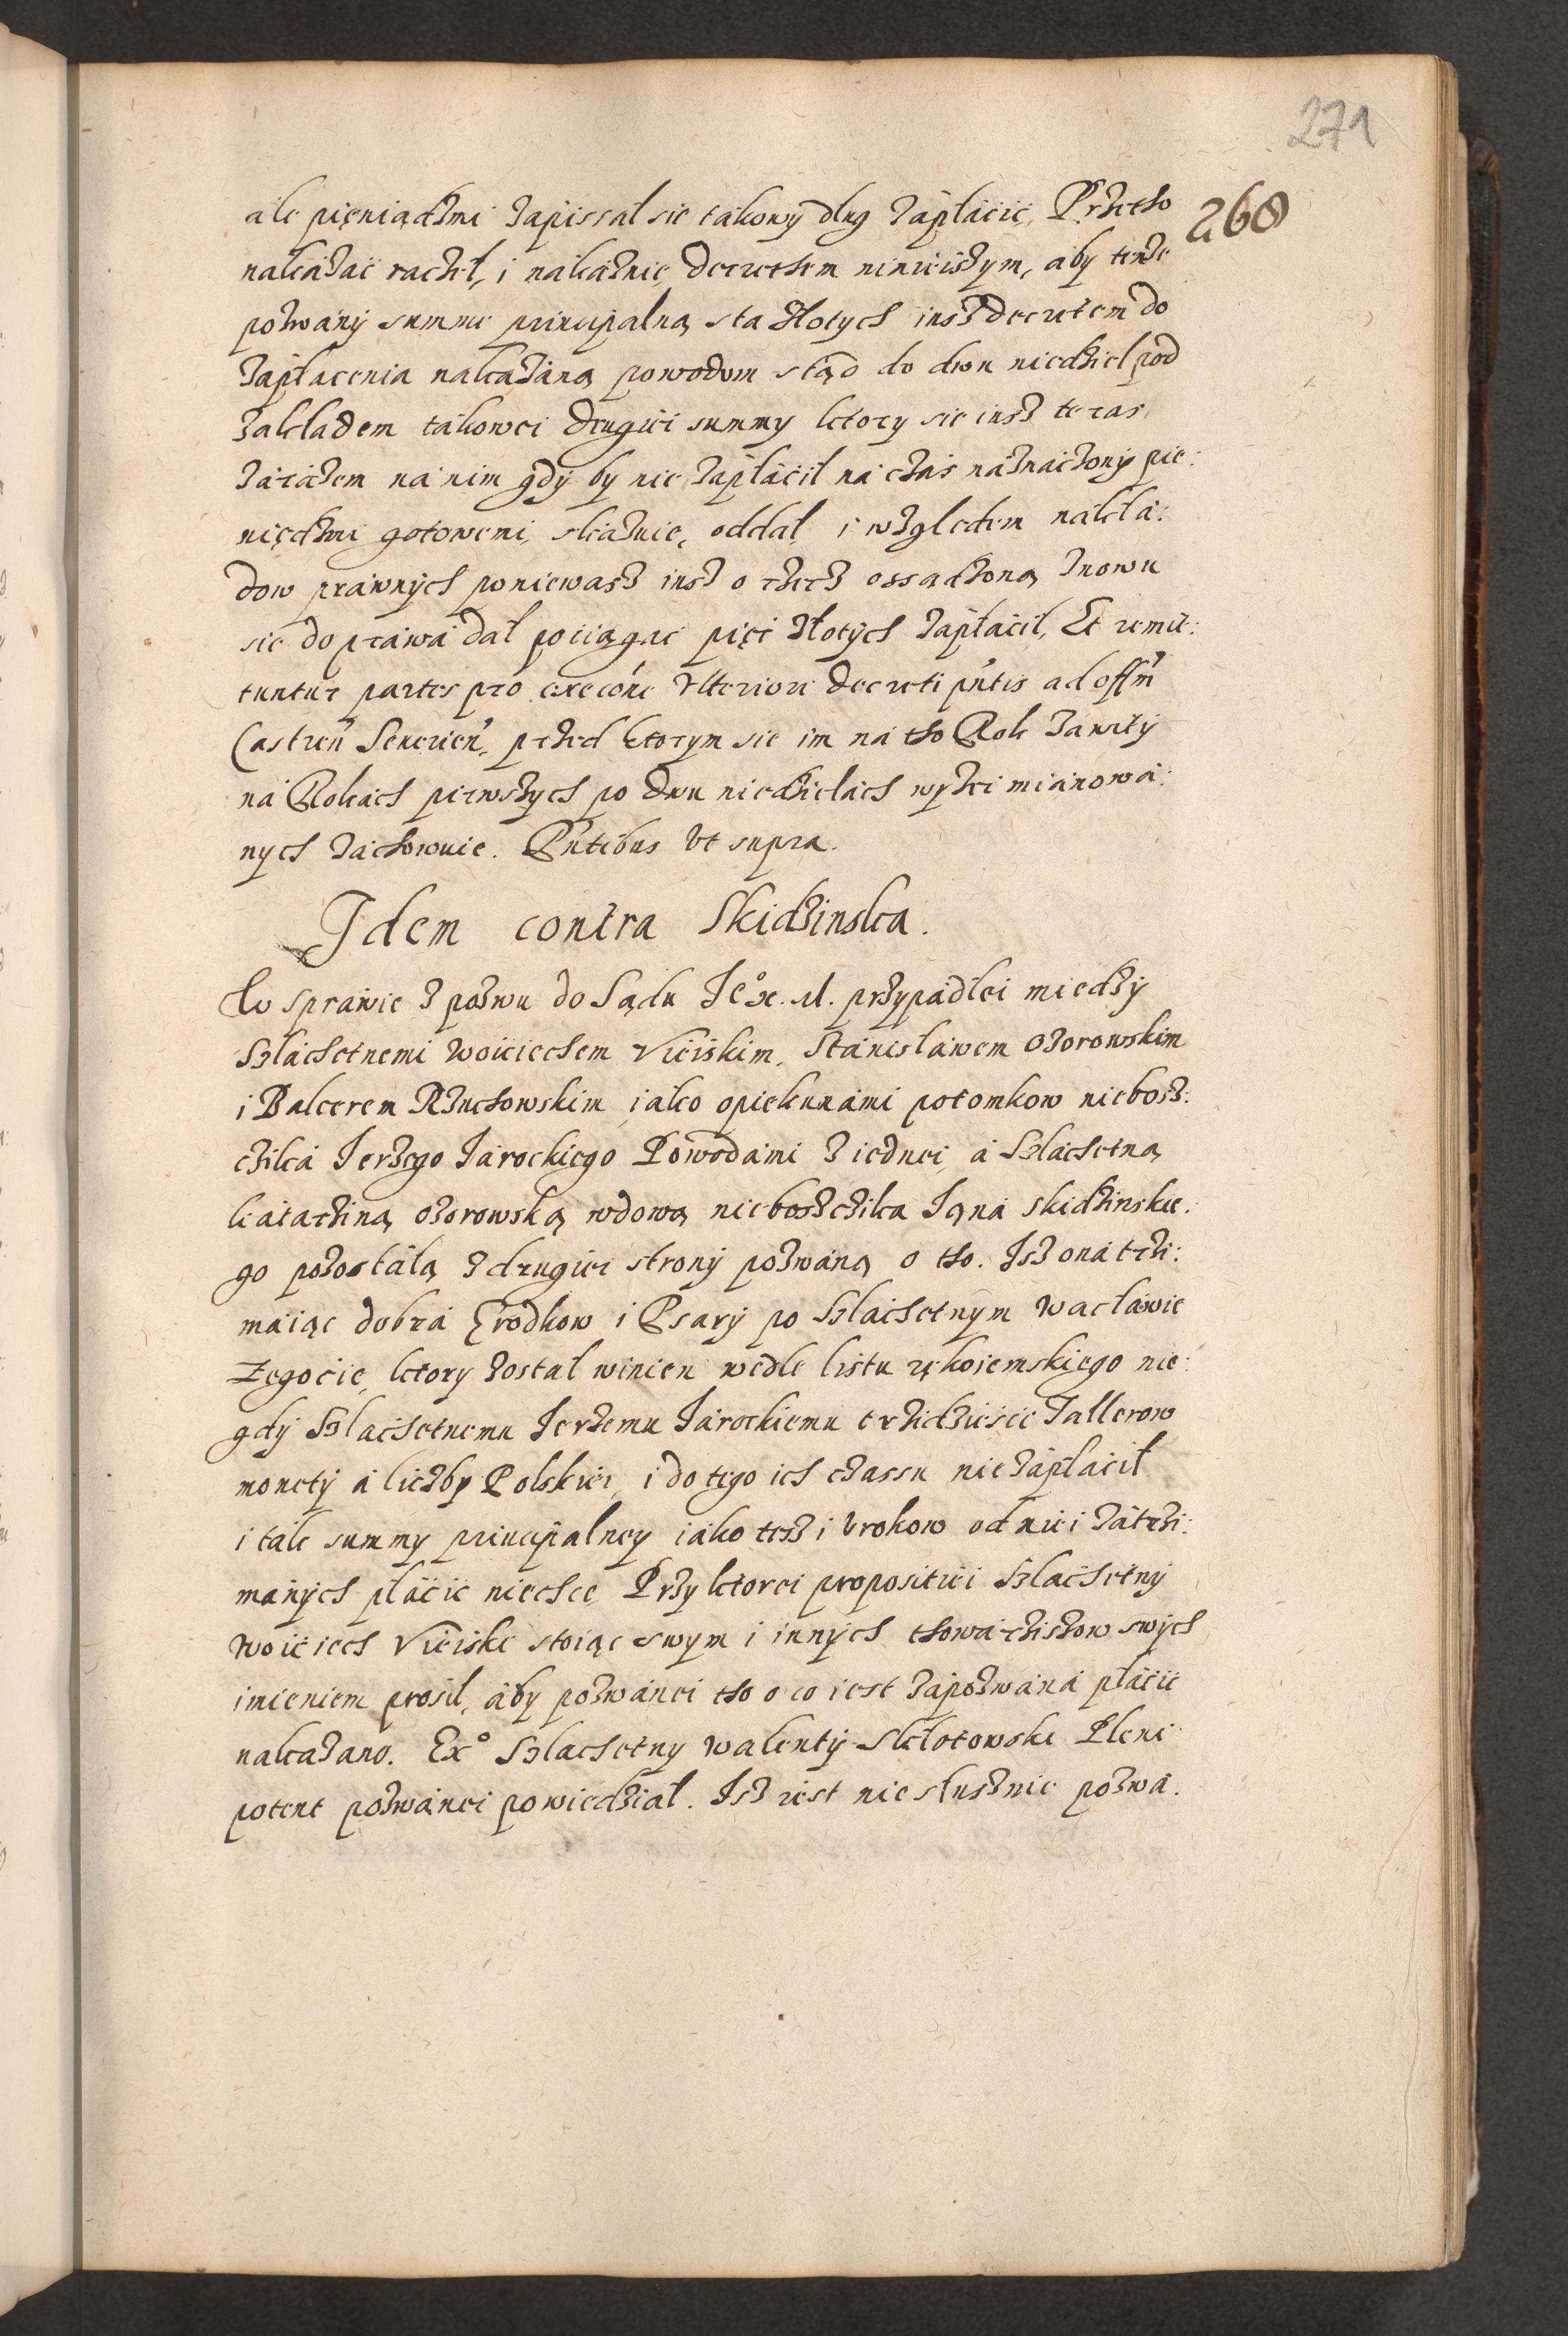 271
268
ale pięniądzmi zapissał sie takowy dług zapłacic, Przetho
nakazac raczeł, i nakazuie decrethem ninieiszym, aby tenze
pozwany summe principalną sta złotych iusz decretem do
zapłacenia nakazaną powodom stąd do dwu niedziel pod
zakładem takowei drugiei summy ktory sie iusz teras
zarazem na nim gdy by nie zapłacił na czas naznaczony pie:
niędzmi gotowemi, skazuie, oddał, i względem nakła:
dow prawnych poniewasz iusz o rzecz ossadzoną znowu
sie do prawa dał pociągac pięc złotych zapłacił, Et remit:
tuntur partes pro exećóne vlteriori decreti pńtis ad offm̃
Castren̄ Seuerien̄, przed ktorym sie im na tho Rok zawity
na Rokach pierwszych po dwu niedzielach wyżei mianowa:
nych zachowuie. Pńtibus vt supra.
Idem contra Skidzinska.
W sprawie z pozwu do Sądu Je° x. M. przypadłei miedzy
Szlachetnemi Woiciechem Vieiskim, Stanisławem Ozorowskim
i Balcerem Rzuchowskim iako opiekunami potomkow niebosz:
czika Jerzego Jarockiego Powodami z iednei, a Szlachetną
Katarziną Ozorowską wdową nieboszczika Jana Skidzinskie:
go pozostałą z drugiei strony pozwaną o tho. Isz ona trzi:
maiąc dobra Grodkow i Psary po Szlachetnym Wacławie
Zegocie, ktory został winien wedle listu rękoiemskiego nie:
gdy Szlachetnemu Jerzemu Jarockiemu trzidziescie Tallerow
monety a liczby Polskiei, i do tego ich czassu nie zapłacił
i tak summy principalney iako tesz i vrokow od niei zatrzi:
manych płacic niechce, Przy ktorei propositiei Szlachetny
Woiciech Vieiski stoiąc swym i innych thowarziszow swych
imieniem prosił, aby pozwanei tho o co iest zapozwana płacic
nakazano. Ex° Szlachetny Walenty Skłotowski Pleni
potent pozwanei powiedział. Isz iest niesłusznie pozwa: